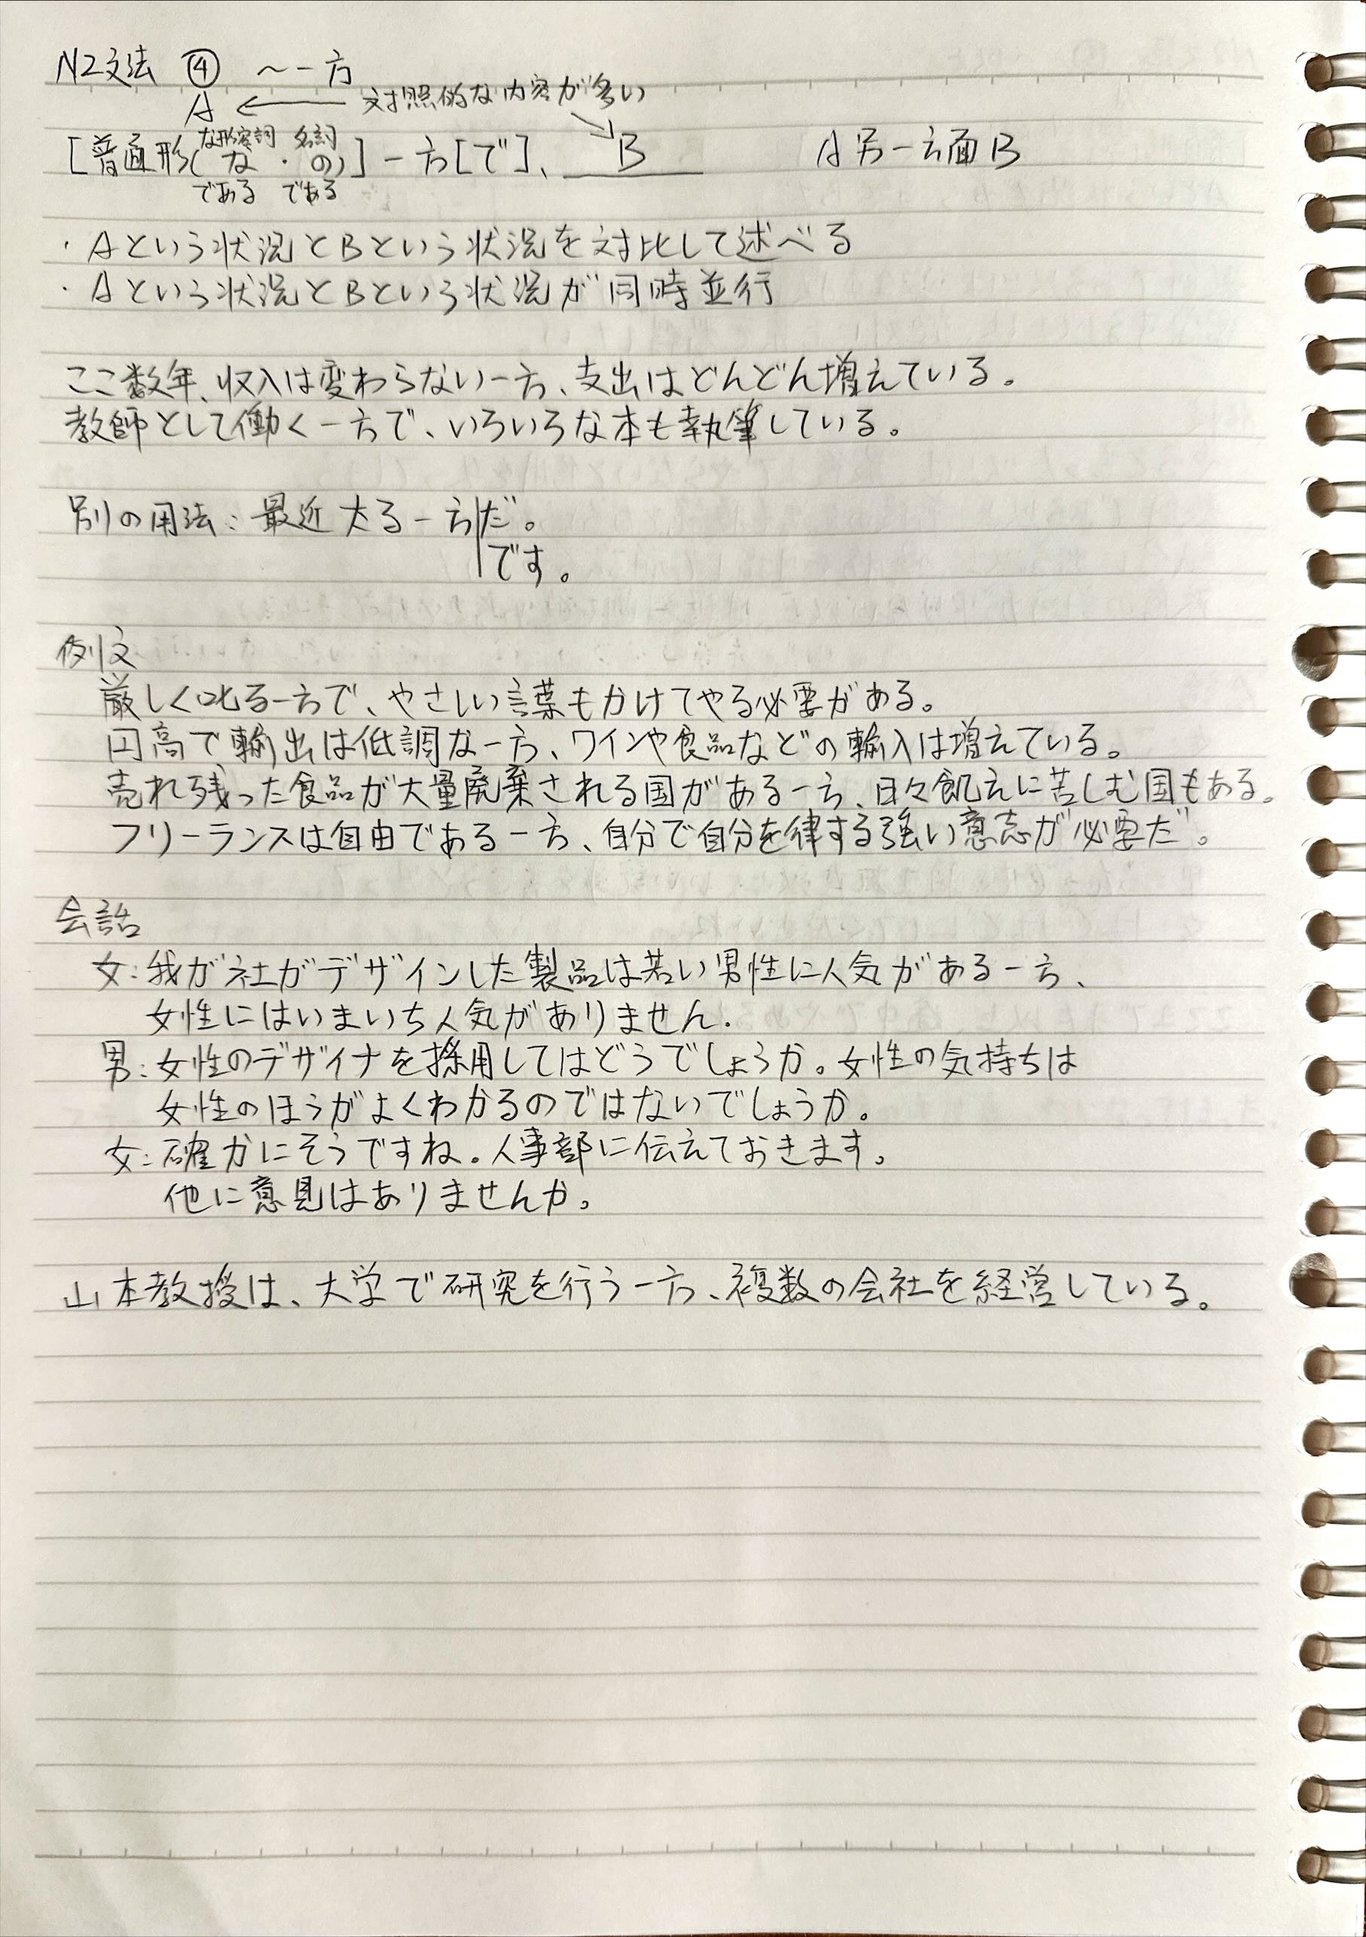 N2文法 ④ ～一方
A ← 対照的な内容が多い
な形容詞 名詞
[普通形(な・の)]一方[で]、 B A另一方面B
である である
・Aという状況とBという状況を対比して述べる
・Aという状況とBという状況が同時並行
ここ数年、収入は変わらない一方、支出はどんどん増えている。
教師として働く一方で、いろいろな本も執筆している。
別の用法：最近太る一方だ。
です。
例文
厳しく叱る一方で、やさしい言葉もかけてやる必要がある。
円高で輸出は低調な一方、ワインや食品などの輸入は増えている。
売れ残った食品が大量廃棄される国がある一方、日々飢えに苦しむ国もある。
フリーランスは自由である一方、自分で自分を律する強い意志が必要だ。
会話
女：我が社がデザインした製品は若い男性に人気がある一方、
女性にはいまいち人気がありません.
男：女性のデザイナを採用してはどうでしょうか。女性の気持ちは
女性のほうがよくわかるのではないでしょうか。
女：確かにそうですね。人事部に伝えておきます。
他に意見はありませんか。
山本教授は、大学で研究を行う一方、複数の会社を経営している。